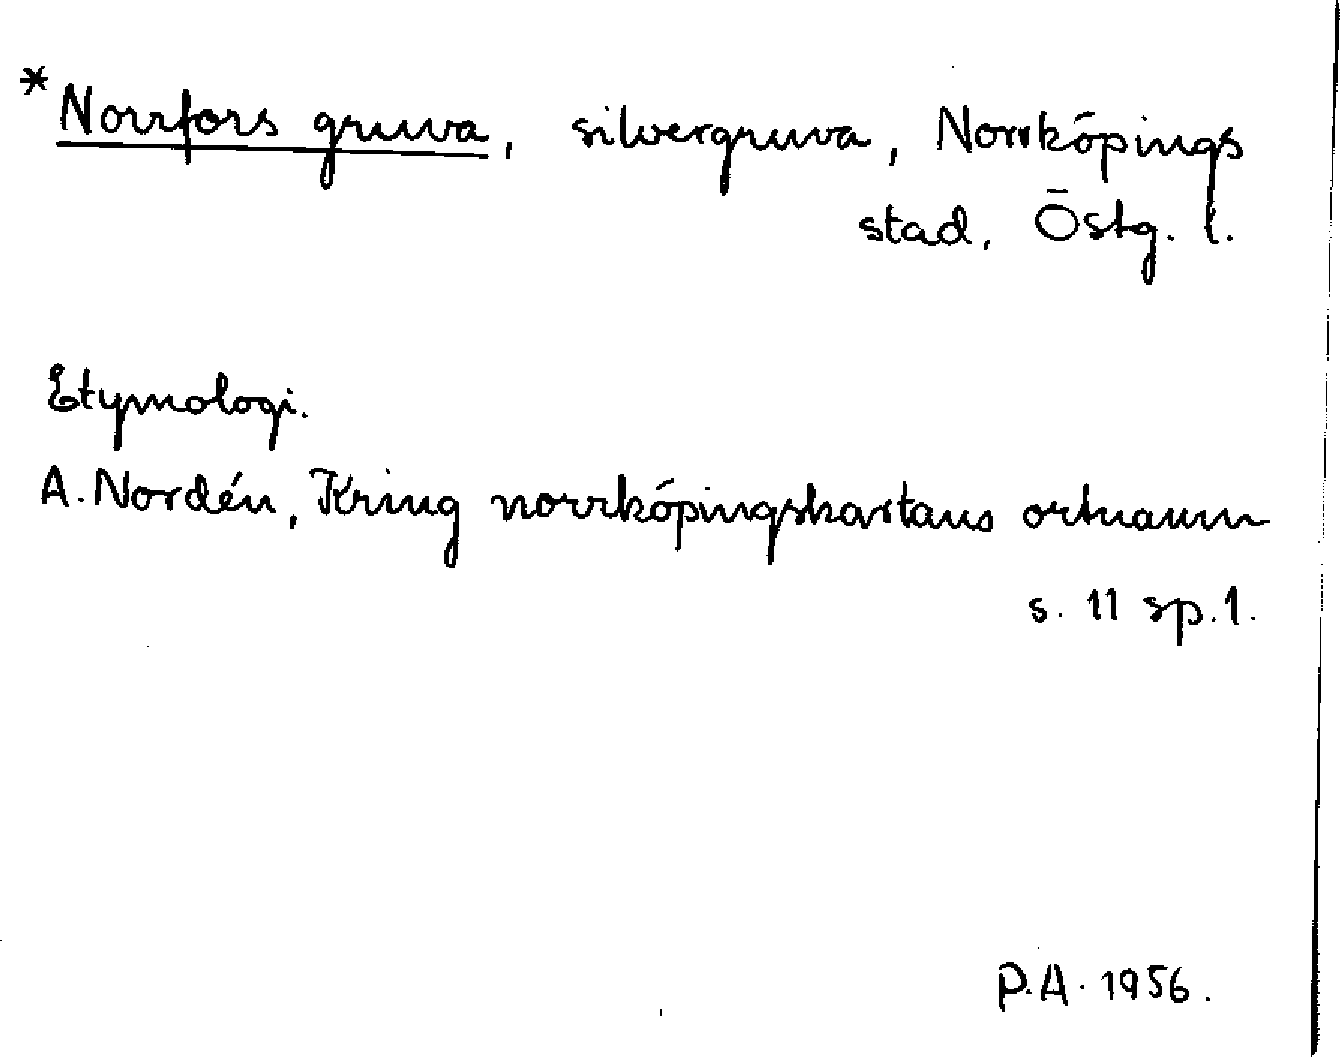 *Norrfors gruva, silvergruva, Norrköpings
stad, Östg. l.
Etymologi.
A. Nordén, Kring norrköpingskartans ortnamn
s. 11 sp. 1.
P.A. 1956.